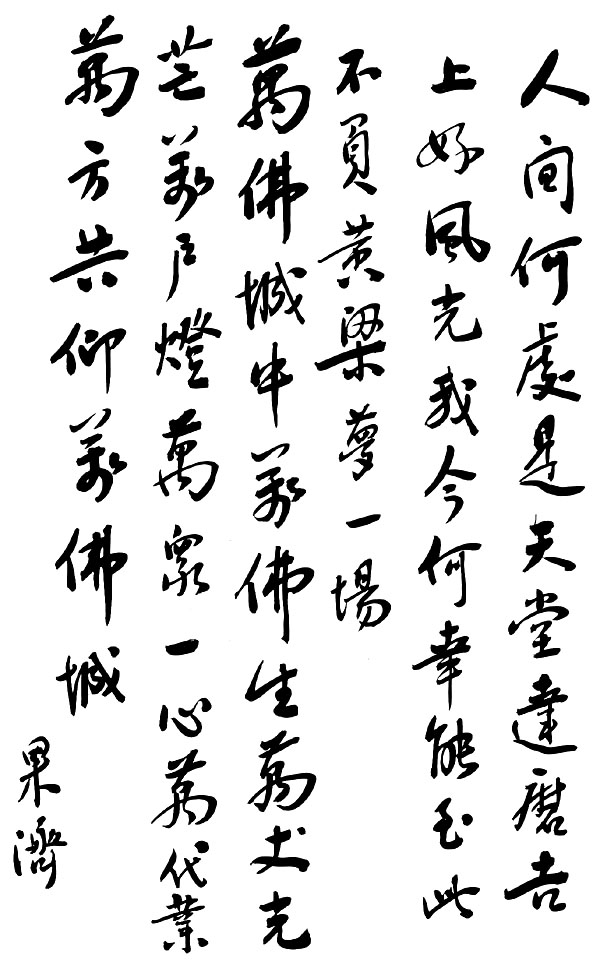 人間何處是天堂達磨吉
上好風光我今何幸能至此
不負黃梁夢一場
萬佛城中萬佛生萬丈光
芒萬戶燈萬眾一心萬代業
萬方共仰萬佛城
果濟